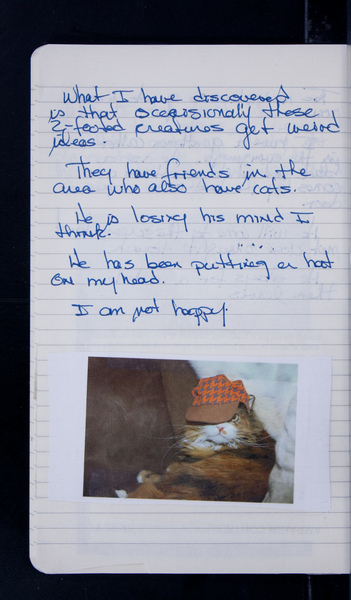 What I have discovered
is that occasionally these
2-footed creatures get weird
ideas.
They have friends in the
area who also have cats.
He is losing his mind I
think.
He has been putting a hat
on my head.
I am not happy.